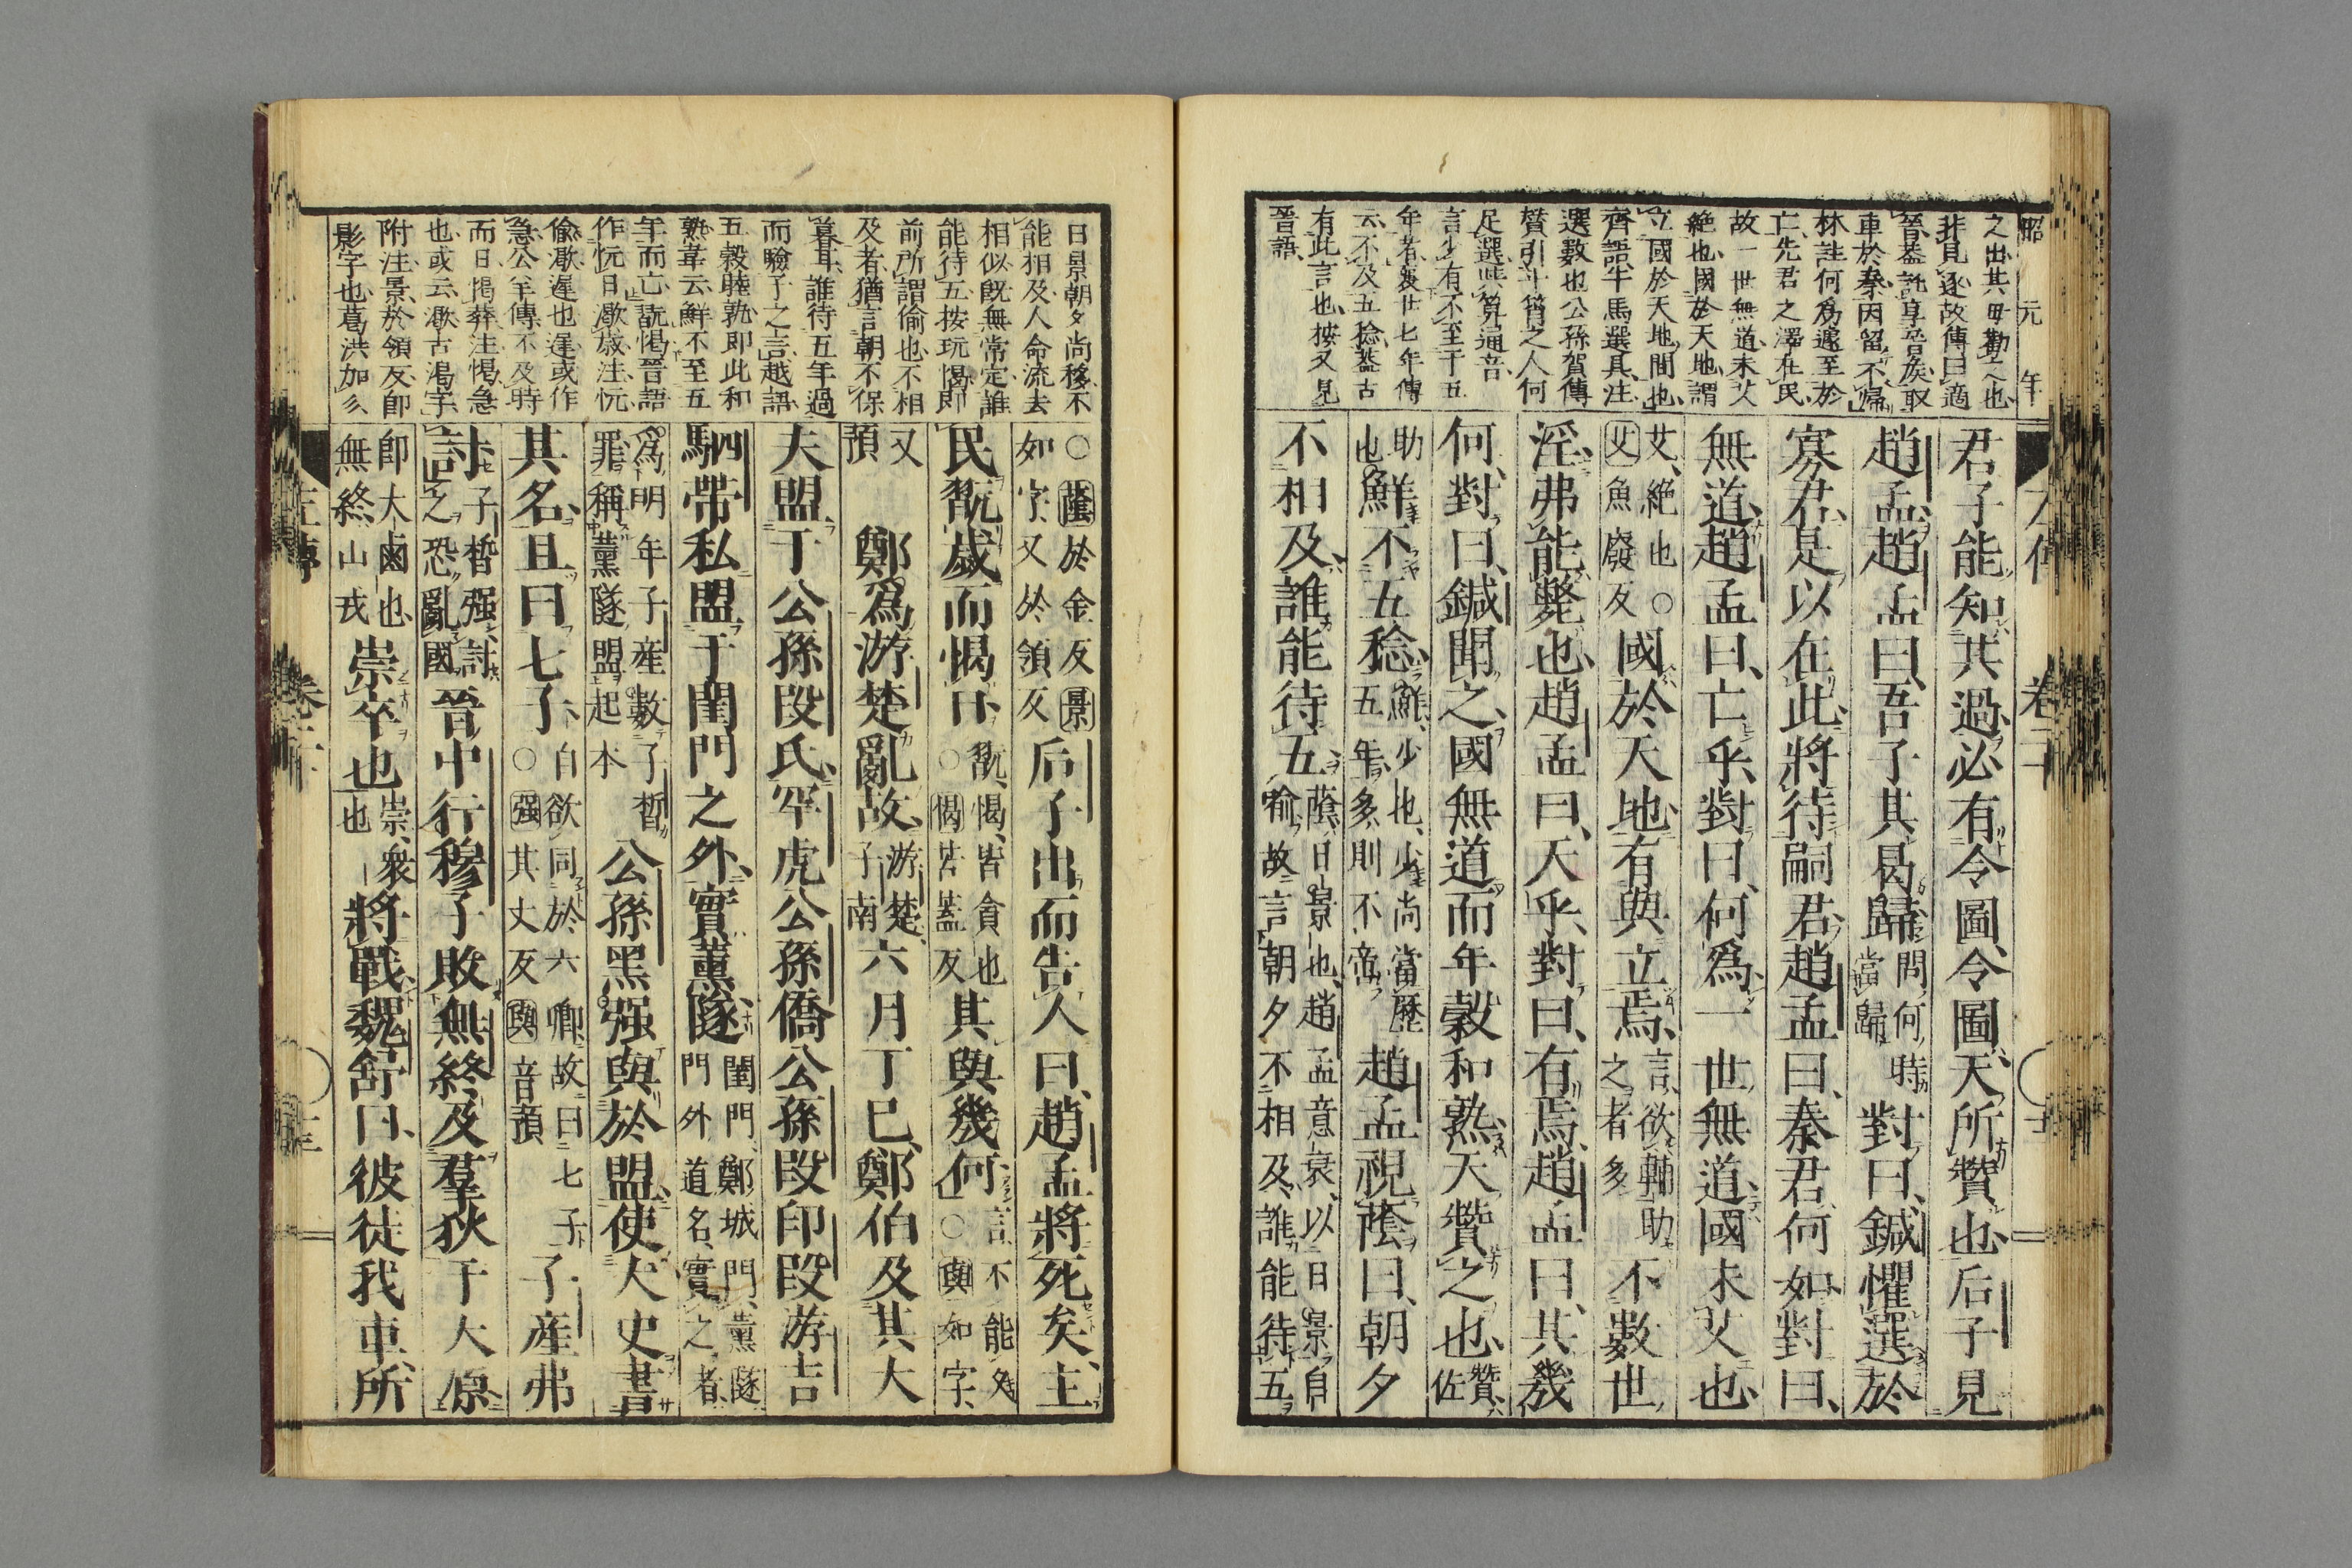 昭元年
之出其母勸之也
非見逐故傳曰適
晉蓋託享晉矦取
車於秦因留不歸
林註何爲遽至於
亡先君之澤在民
故一世無道未艾
絶也國於天地謂
立國於天地間也
齊語牛馬選具注
選數也公孫賀傳
贊引斗筲之人何
足選與算通音
言少有不至于五
年者襄廿七年傳
云不及五稔蓋古
有此言也按又見
晉語
君子能知其過必有令圖令圖天所贊也后子見
趙孟趙孟曰吾子其曷歸問何時當歸對曰鍼懼選於
寡君是以在此將待嗣君趙孟曰秦君何如對曰
無道趙孟曰亡乎對曰何爲一世無道國未艾也
艾絶也○艾魚廢反國於天地有與立焉言欲輔助之者多不數世
淫弗能斃也趙孟曰天乎對曰有焉趙孟曰其幾
何對曰鍼聞之國無道而年穀和熟天贊之也贊佐
助也鮮不五稔鮮少也少尚當歷五年多則不啻趙孟視蔭曰朝夕
不相及誰能待五蔭日景也趙孟意衰以日景自喻故言朝夕不相及誰能待五
日景朝夕尚移不
能相及人命流去
相似旣無常定誰
能待五按玩愒即
前所謂偷也不相
及者猶言朝不保
暮耳誰待五年過
而驗子之言越語
五穀睦孰即此和
熟韋云鮮不至五
年而亡翫愒晉語
作忨日㵣歲注忨
偷㵣遲也遲或作
急公羊傳不及時
而日愒葬注愒急
也或云㵣古渴字
附注景於領反即
影字也葛洪加彡
○蔭於金反景如字又於領反后子出而告人曰趙孟將死矣主
民翫歲而愒日翫愒皆貪也○愒苦蓋反其與幾何言不能久○與如字
又預鄭爲游楚亂故游楚子南六月丁巳鄭伯及其大
夫盟于公孫段氏罕虎公孫僑公孫段印段游吉
駟帶私盟于閨門之外實薰隧閨門鄭城門薰隧門外道名實之者
爲明年子產數子皙罪稱薰隧盟起本公孫黑强與於盟使大史書
其名且曰七子自欲同於六卿故曰七子○强其丈反與音預子產弗
討子皙强討之恐亂國晉中行穆子敗無終及羣狄于大原
即大鹵也無終山戎崇卒也崇衆也將戰魏舒曰彼徒我車所